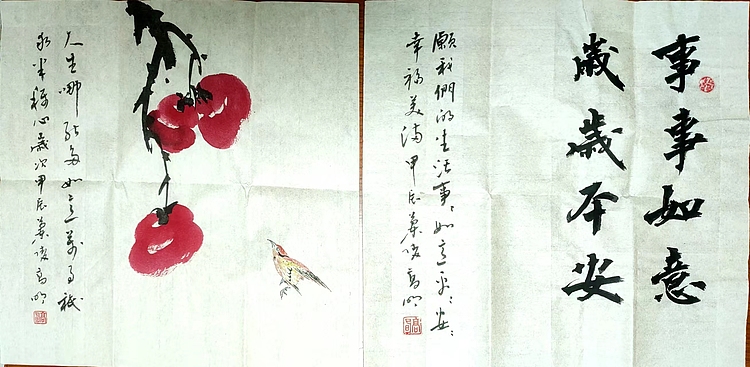 事事如意
歲歲平安
願我們的生活事〻如意平〻安〻
幸福美滿甲辰高明
人生哪能多如意萬事祇
求半稱心歲次甲辰高明